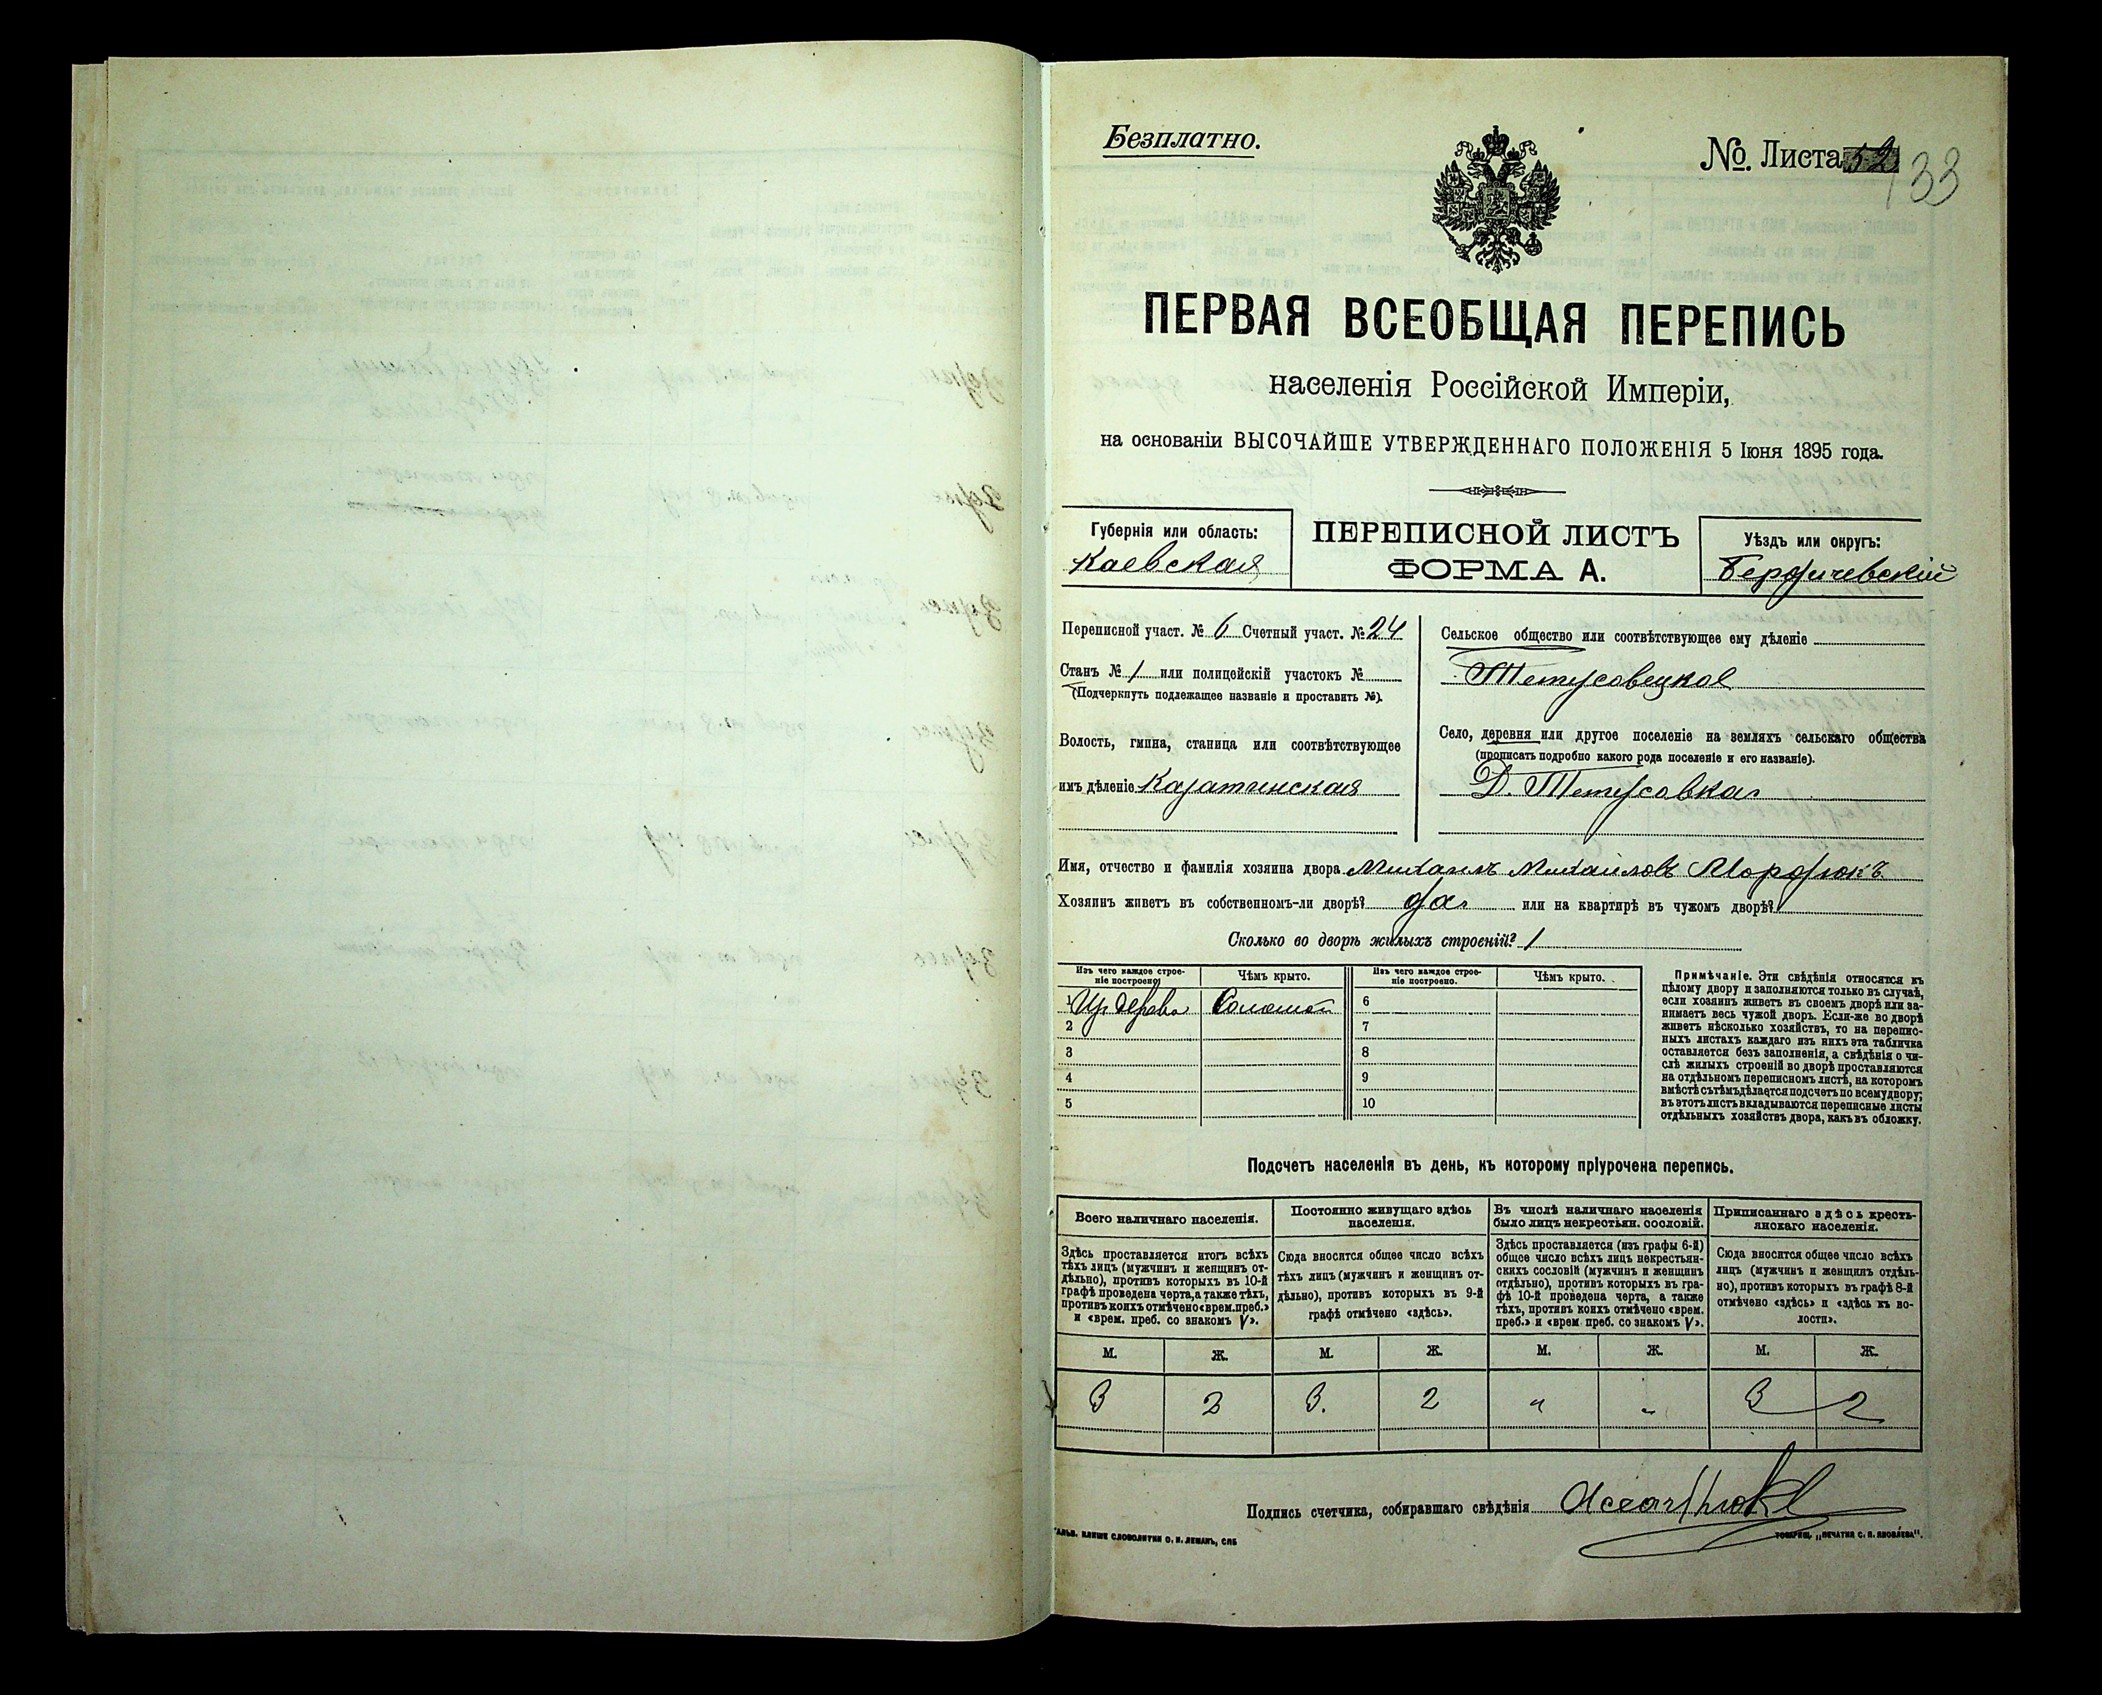 Безплатно.
№ Листа 52
133
ПЕРВАЯ ВСЕОБЩАЯ ПЕРЕПИСЬ
населенія Россійской Имперіи,
на основаніи ВЫСОЧАЙШЕ УТВЕРЖДЕННАГО ПОЛОЖЕНІЯ 5 Іюня 1895 года.
Губернія или область:
Кіевская
ПЕРЕПИСНОЙ ЛИСТЪ
ФОРМА А.
Уѣздъ или округъ:
Бердичевскій
Переписной участ. № 6 Счетный участ. № 24
Станъ № 1 или полицейскій участокъ №
(Подчеркнуть подлежащее названіе и проставить №).
Волость, гмина, станица или соотвѣтствующее
имъ дѣленіе Казатинская
Сельское общество или соотвѣтствующее ему дѣленіе
Титусовецкое
Село, деревня или другое поселеніе на земляхъ сельскаго общества
(прописать подробно какого рода поселеніе и его названіе).
Д. Титусовка
Имя, отчество и фамилія хозяина двора Михаилъ Михайловъ Мордюкъ
Хозяинъ живетъ въ собственномъ-ли дворѣ? да или на квартирѣ въ чужомъ дворѣ?
Сколько во дворѣ жилыхъ строеній? 1
Изъ чего каждое строе-
ніе построено.
Чѣмъ крыто.
Изъ чего каждое строе-
ніе построено.
Чѣмъ крыто.
1 Изъ дерева Соломой 6
2 7
3 8
4 9
5 10
Примѣчаніе. Эти свѣдѣнія относятся къ
цѣлому двору и заполняются только въ случаѣ,
если хозяинъ живетъ въ своемъ дворѣ или за-
нимаетъ весь чужой дворъ. Если-же во дворѣ
живетъ нѣсколько хозяйствъ, то на перепис-
ныхъ листахъ каждаго изъ нихъ эта табличка
оставляется безъ заполненія, а свѣдѣнія о чи-
слѣ жилыхъ строеній во дворѣ проставляются
на отдѣльномъ переписномъ листѣ, на которомъ
вмѣстѣ съ тѣмъ дѣлается подсчетъ по всему двору;
въ этотъ листъ вкладываются переписные листы
отдѣльныхъ хозяйствъ двора, какъ въ обложку.
Подсчетъ населенія въ день, къ которому пріурочена перепись.
Всего наличнаго населенія.
Здѣсь проставляется итогъ всѣхъ
тѣхъ лицъ (мужчинъ и женщинъ от-
дѣльно), противъ которыхъ въ 10-й
графѣ проведена черта, а также тѣхъ,
противъ коихъ отмѣчено «врем. преб.»
и «врем. преб. со знакомъ V».
Постоянно живущаго здѣсь
населенія.
Сюда вносится общее число всѣхъ
тѣхъ лицъ (мужчинъ и женщинъ от-
дѣльно), противъ которыхъ въ 9-й
графѣ отмѣчено «здѣсь».
Въ числѣ наличнаго населенія
было лицъ некрестьян. сословій.
Здѣсь проставляется (изъ графы 6-й)
общее число всѣхъ лицъ некрестьян-
скихъ сословій (мужчинъ и женщинъ
отдѣльно), противъ которыхъ въ гра-
фѣ 10-й проведена черта, а также
тѣхъ, противъ коихъ отмѣчено «врем.
преб.» и «врем преб. со знакомъ V».
Приписаннаго здѣсь кресть-
янскаго населенія.
Сюда вносится общее число всѣхъ
лицъ (мужчинъ и женщинъ отдѣль-
но), противъ которыхъ въ графѣ 8-й
отмѣчено «здѣсь» и «здѣсь къ во-
лости».
М. Ж. М. Ж. М. Ж. М. Ж.
3 2 3. 2 " " 3 2
Подпись счетчика, собиравшаго свѣдѣнія
ГАЛЬВ. КЛИШЕ СЛОВОЛИТНИ О. И. ЛЕМАНЪ, СПБ
ТОВАРИЩ. „ПЕЧАТНЯ С. П. ЯКОВЛЕВА".